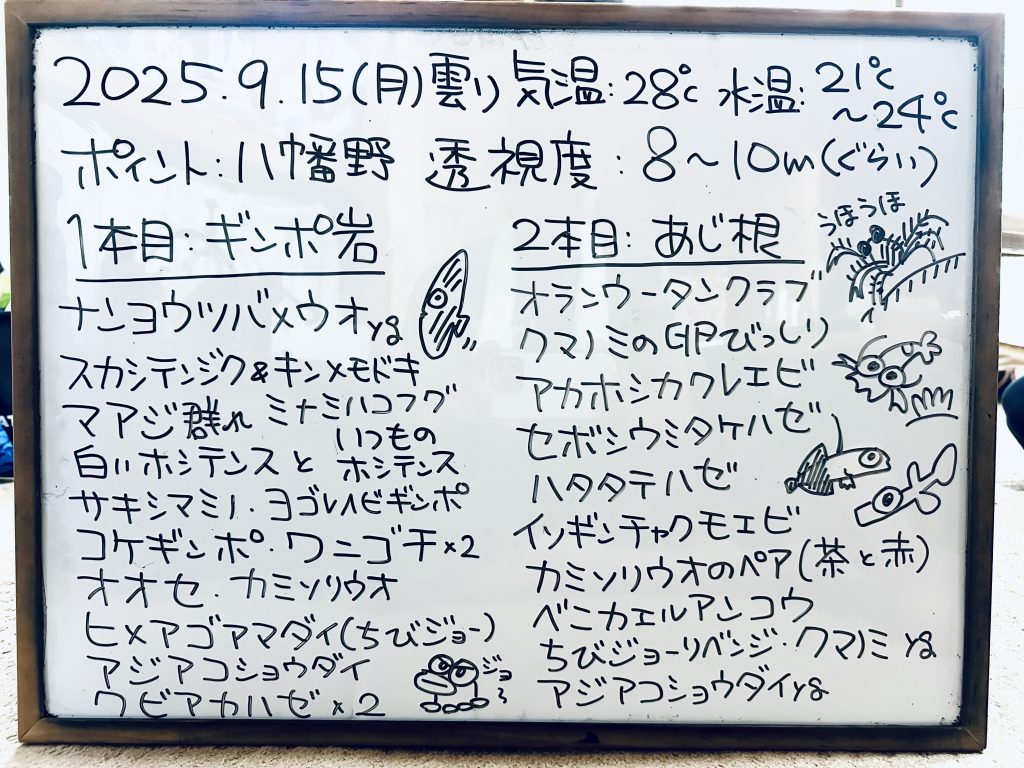 2025.9.15(月)雲り 気温:28℃ 水温:21℃
～24℃
ポイント:八幡野 透視度:8～10m(ぐらい)
1本目:ギンポ岩
ナンヨウツバメウオyg
スカシテンジク&キンメモドキ
マアジ群れ ミナミハコフグ
白いホシテンスと いつものホシテンス
サキシマミノ・ヨゴレヘビギンポ
コケギンポ・ワニゴチ×2
オオセ・カミソリウオ
ヒメアゴアマダイ(ちびジョー)
アジアコショウダイ
クビアカハゼ×2
ジョー
2本目:あじ根
うほうほ
オランウータンクラブ
クマノミの卵びっしり
アカホシカクレエビ
セボシウミタケハゼ
ハタタテハゼ
イソギンチャクモエビ
カミソリウオのペア(茶と赤)
ベニカエルアンコウ
ちびジョーリベンジ・クマノミyg
アジアコショウダイyg